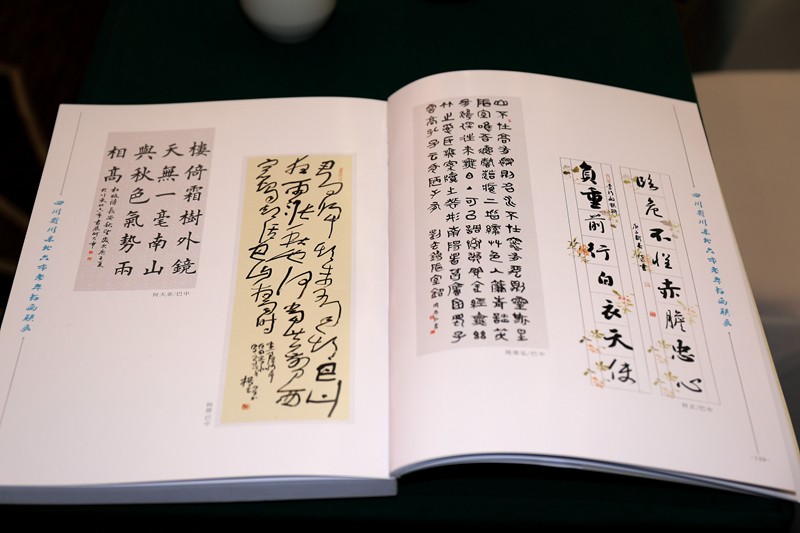 四川省川东北六市老年书画联展
棲倚霜樹外鏡
天無一毫南山
與秋色氣勢兩
相高
君问归期未有期巴山
夜雨涨秋池何当共剪西
窗烛却话巴山夜雨时
山不在高有仙則名水不在深有龍則靈斯是
陋室惟吾德馨苔痕上階綠草色入簾青談笑
有鴻儒往來無白丁可以調素琴閱金經無絲
竹之亂耳無案牘之勞形南陽諸葛廬西蜀子
雲亭孔子云何陋之有 劉禹錫陋室銘
临危不惧赤膽忠心
負重前行白衣天使
四川省川东北六市老年书画联展